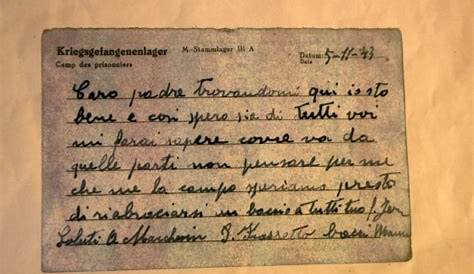 Kriegsgefangenenlager M.-Stammlager III A Datum: 5-11-43
Camp des prisonniers Date
Caro padre trovandomi qui io sto
bene e così spero sia di tutti voi
mi farai sapere come va da
quelle parti non pensare per me
che me la campo speriamo presto
di riabraciarsi un bacio a tutti tuo f.
Saluti a baci